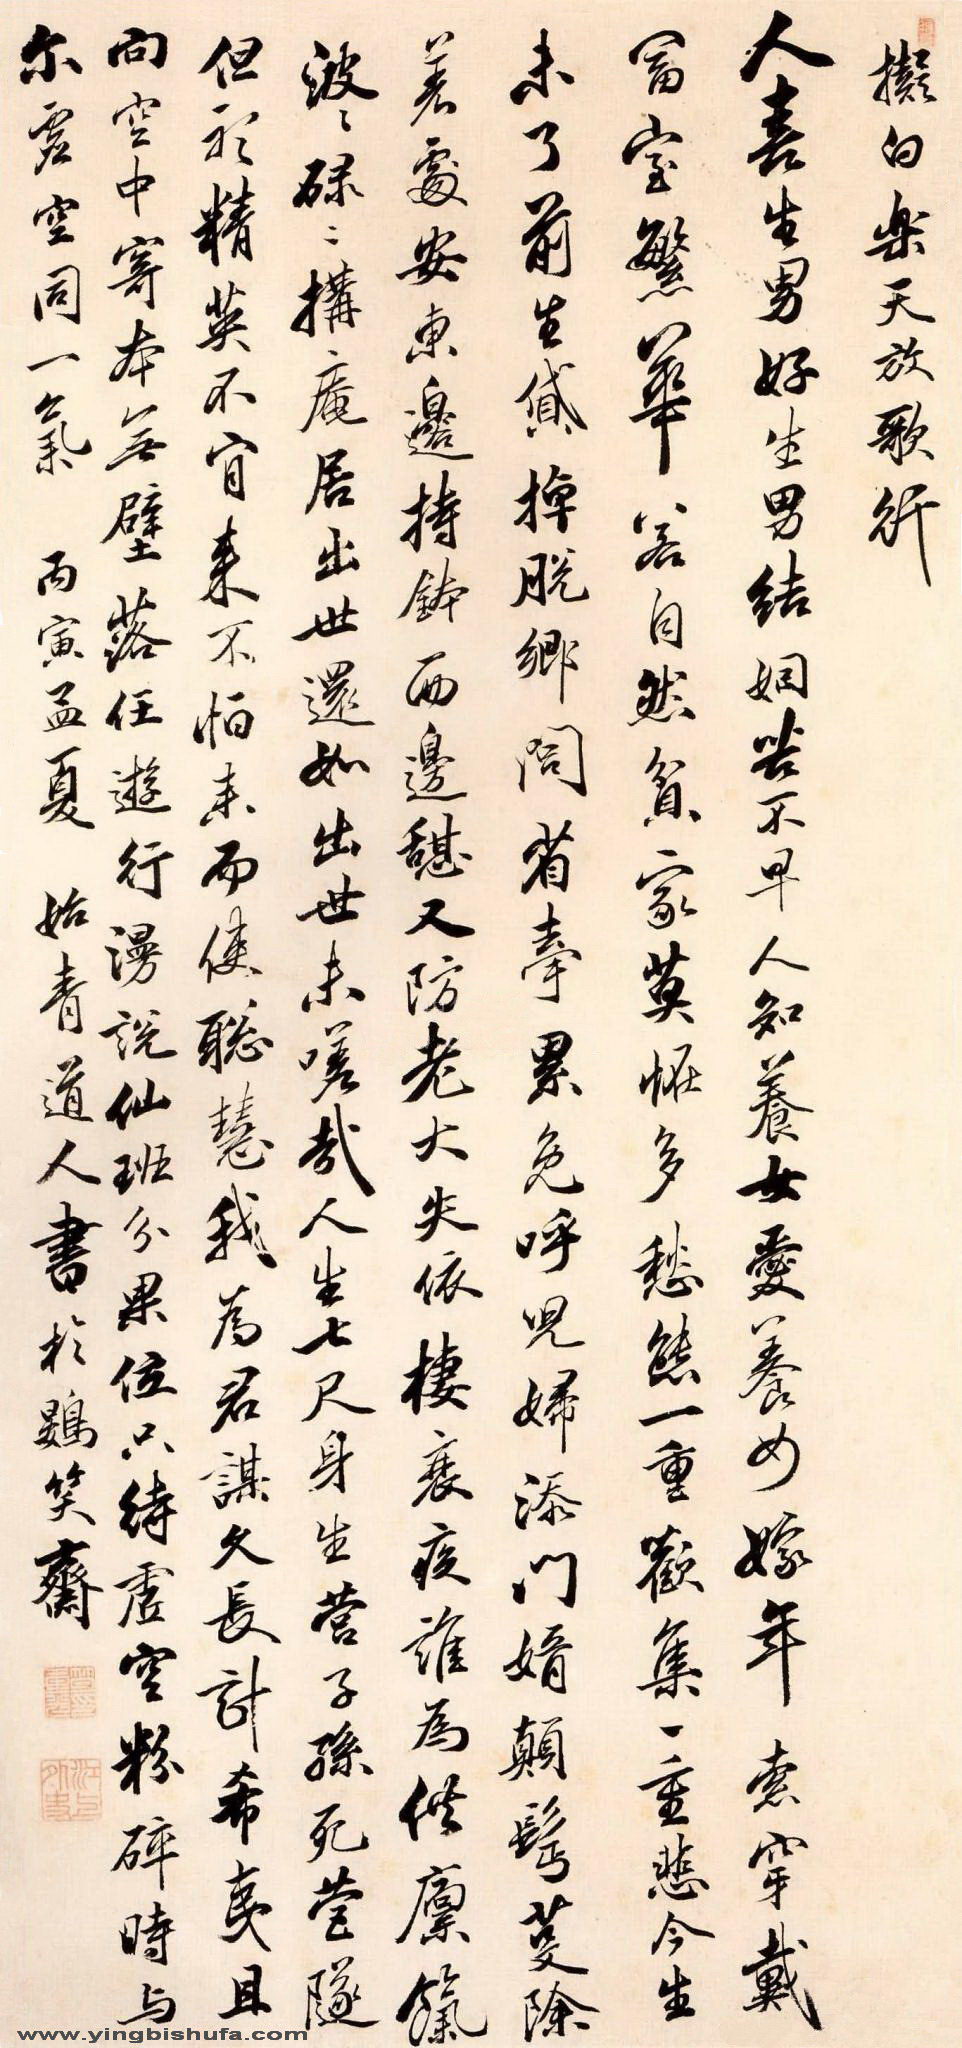 擬白樂天放歌行
人喜生男好生男結姻苦不早人知養女愛養女嫁年索穿戴
富室繁華若自然貧家莫怪多愁態一重歡集一重悲今生
未了前生貸掉脫鄉問省牽累免呼兒婦添門婿顛髩荽除
着處安東邊持鉢西邊甜又防老大失依棲衰疾誰為供廩餼
波〻碌〻搆庵居出世還如出世未嗟哉人生七尺身生營子孫死營隧
但祈精英不宜來不怕未而使聰慧我為君謀久長計希夷且
向空中寄本無壁落任遊行漫説仙班分果位只待虛空粉碎時与
尔虛空同一氣 丙寅孟夏 始青道人書於鷃笑齋
www.yingbishufa.com